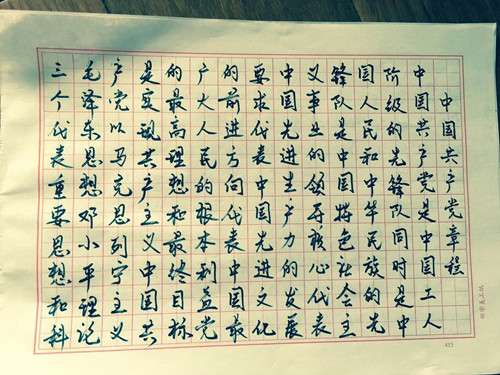 中国共产党章程
中国共产党是中国工人
阶级的先锋队同时是中
国人民和中华民族的先
锋队是中国特色社会主
义事业的领导核心代表
中国先进生产力的发展
要求代表中国先进文化
的前进方向代表中国最
广大人民的根本利益党
的最高理想和最终目标
是实现共产主义中国共
产党以马克思列宁主义
毛泽东思想邓小平理论
三个代表重要思想和科
413